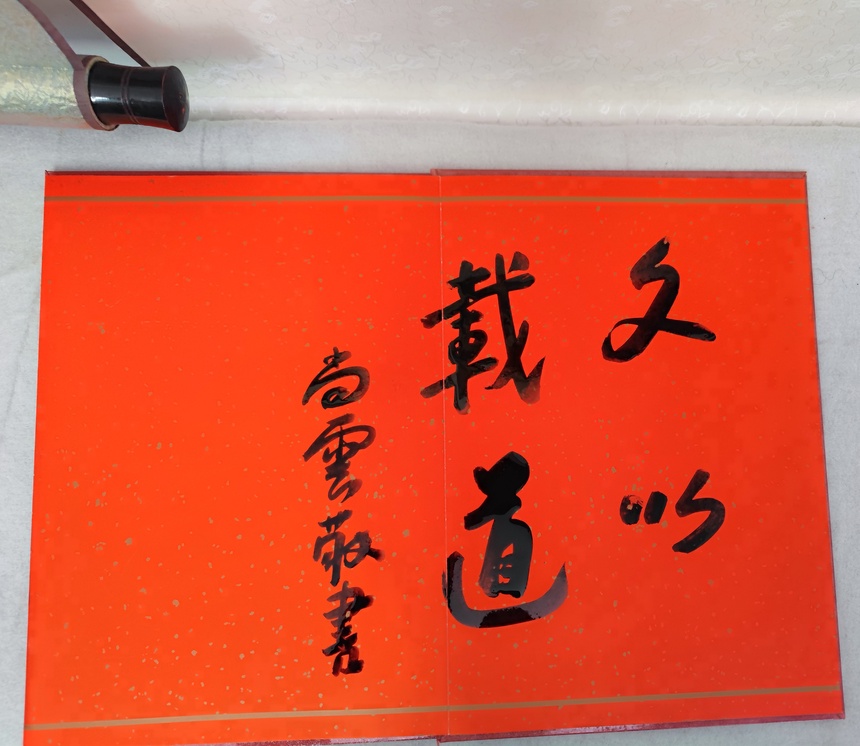 文以
載道
尚雲敬書